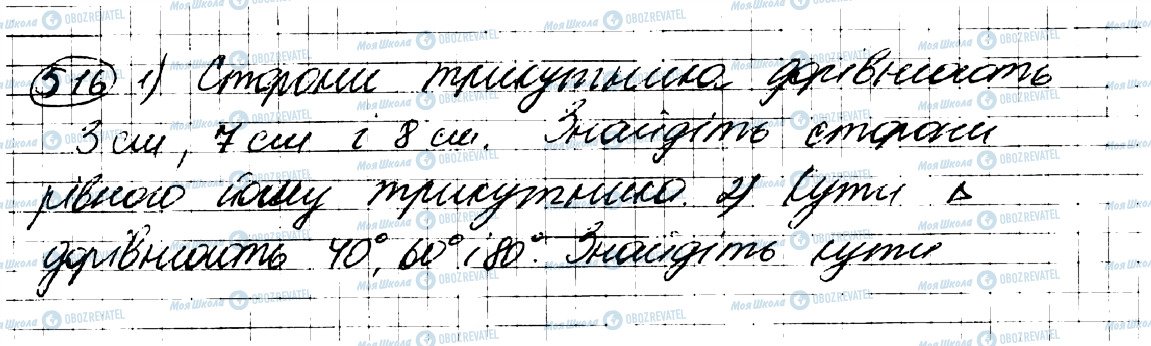 516 1) Сторони трикутника дорівнюють
3 см, 7 см і 8 см. Знайдіть сторони
рівного йому трикутника. 2) Кути Δ
дорівнюють 40°, 60° і 80°. Знайдіть кути